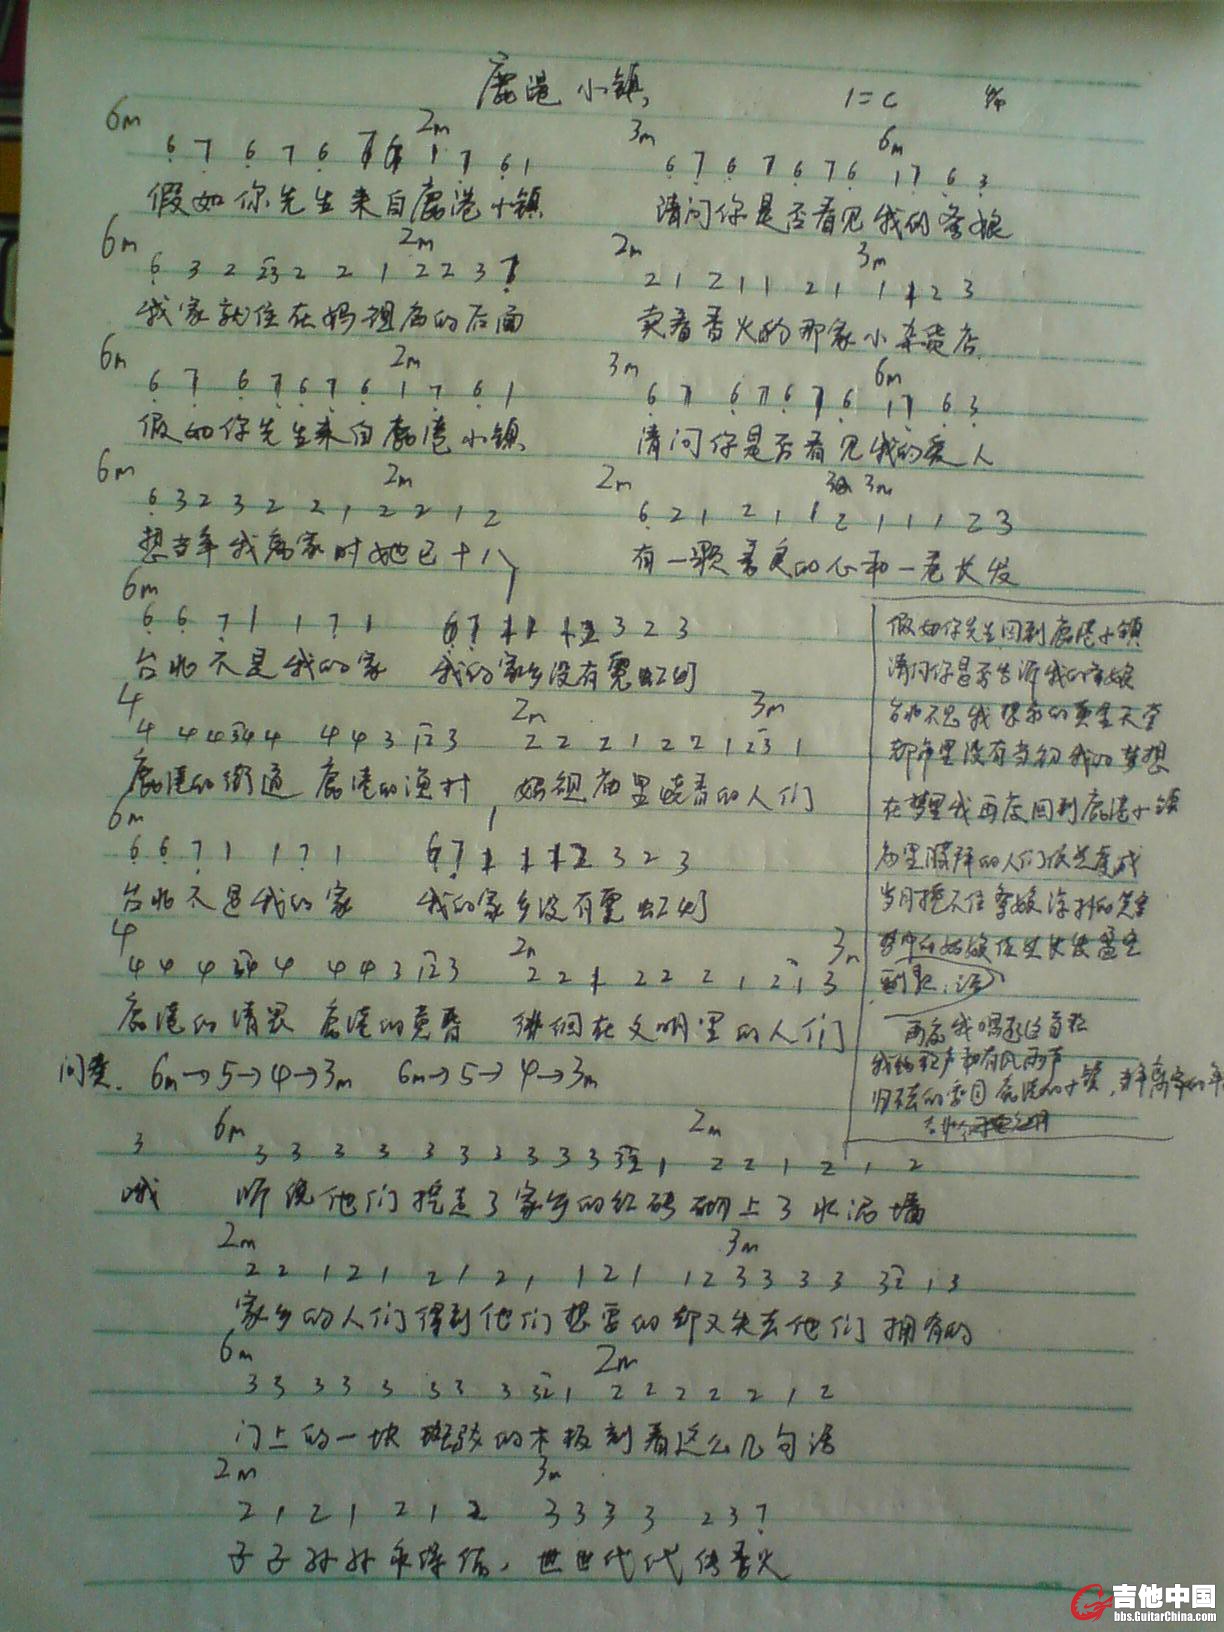 鹿港小镇 1=C
6m 2m 3m 6m
6 7 6 7 6 1 7 6 1 6 7 6 7 6 7 6 1 7 6 3
假如你先生来自鹿港小镇 请问你是否看见我的爹娘
6m 2m 2m 3m
6 3 2 23 2 2 1 2 2 3 2 1 2 1 1 2 1 1 1 2 3
我家就住在妈祖庙的后面 卖着香火的那家小杂货店
6m 2m 3m 6m
6 7 6 7 6 7 6 1 7 6 1 6 7 6 7 6 7 6 1 7 6 3
假如你先生来自鹿港小镇 请问你是否看见我的爱人
6m 2m 2m 3m
6 3 2 3 2 2 1 2 2 1 2 6 2 1 2 1 1 2 1 1 1 2 3
想当年我离家时她已十八 有一颗善良的心和一卷长发
6m
6 6 7 1 1 7 1 6 7 1 1 1 2 3 2 3
台北不是我的家 我的家乡没有霓虹灯
4 2m 3m
4 4 4 34 4 4 4 3 12 3 2 2 2 1 2 2 1 23 1
鹿港的街道 鹿港的渔村 妈祖庙里烧香的人们
6m
6 6 7 1 1 7 1 6 7 1 1 1 2 3 2 3
台北不是我的家 我的家乡没有霓虹灯
4 2m 3m
4 4 4 34 4 4 4 3 12 3 2 2 1 2 2 2 1 2 1 3
鹿港的清晨 鹿港的黄昏 徘徊在文明里的人们
间奏. 6m→5→4→3m 6m→5→4→3m
假如你先生回到鹿港小镇
请问你是否告诉我的爹娘
台北不是我想象的黄金天堂
都市里没有当初我的梦想
在梦里我再度回到鹿港小镇
庙里膜拜的人们依然虔诚
岁月掩不住爹娘淳朴的笑容
梦中的姑娘依然长发盈空
再度我唱起这首歌
我的歌声和有风雨声
归不得的家园 鹿港的小镇,当年离家的年
6m 2m
3 3 3 3 3 3 3 3 3 3 3 32 1 2 2 1 2 1 2
哦 听说他们挖走了家乡的红砖砌上了水泥墙
2m 3m
2 2 1 2 1 2 1 2 1 1 2 1 1 2 3 3 3 3 3 32 1 3
家乡的人们得到他们想要的却又失去他们拥有的
6m 2m
3 3 3 3 3 3 3 3 32 1 2 2 2 2 2 1 2
门上的一块斑驳的木板刻着这么几句话
2m 3m
2 1 2 1 2 1 2 3 3 3 3 2 3 7
子子孙孙永保佑,世世代代传香火
吉他中国
bbs.GuitarChina.com